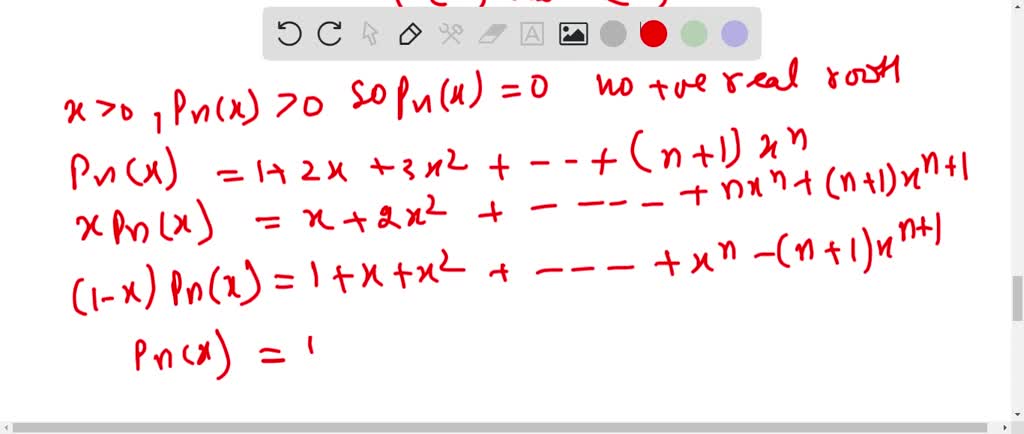 x>0, Pn(x) >0 so Pn(x) = 0 no +ve real root
Pn(x) = 1+ 2x + 3x² + --+ (n+1) xⁿ
x Pn(x) = x + 2x² + ---- + nxⁿ + (n+1)xⁿ⁺¹
(1-x) Pn(x) = 1+x+x² + --- + xⁿ -(n+1)xⁿ⁺¹
Pn(x) = 1